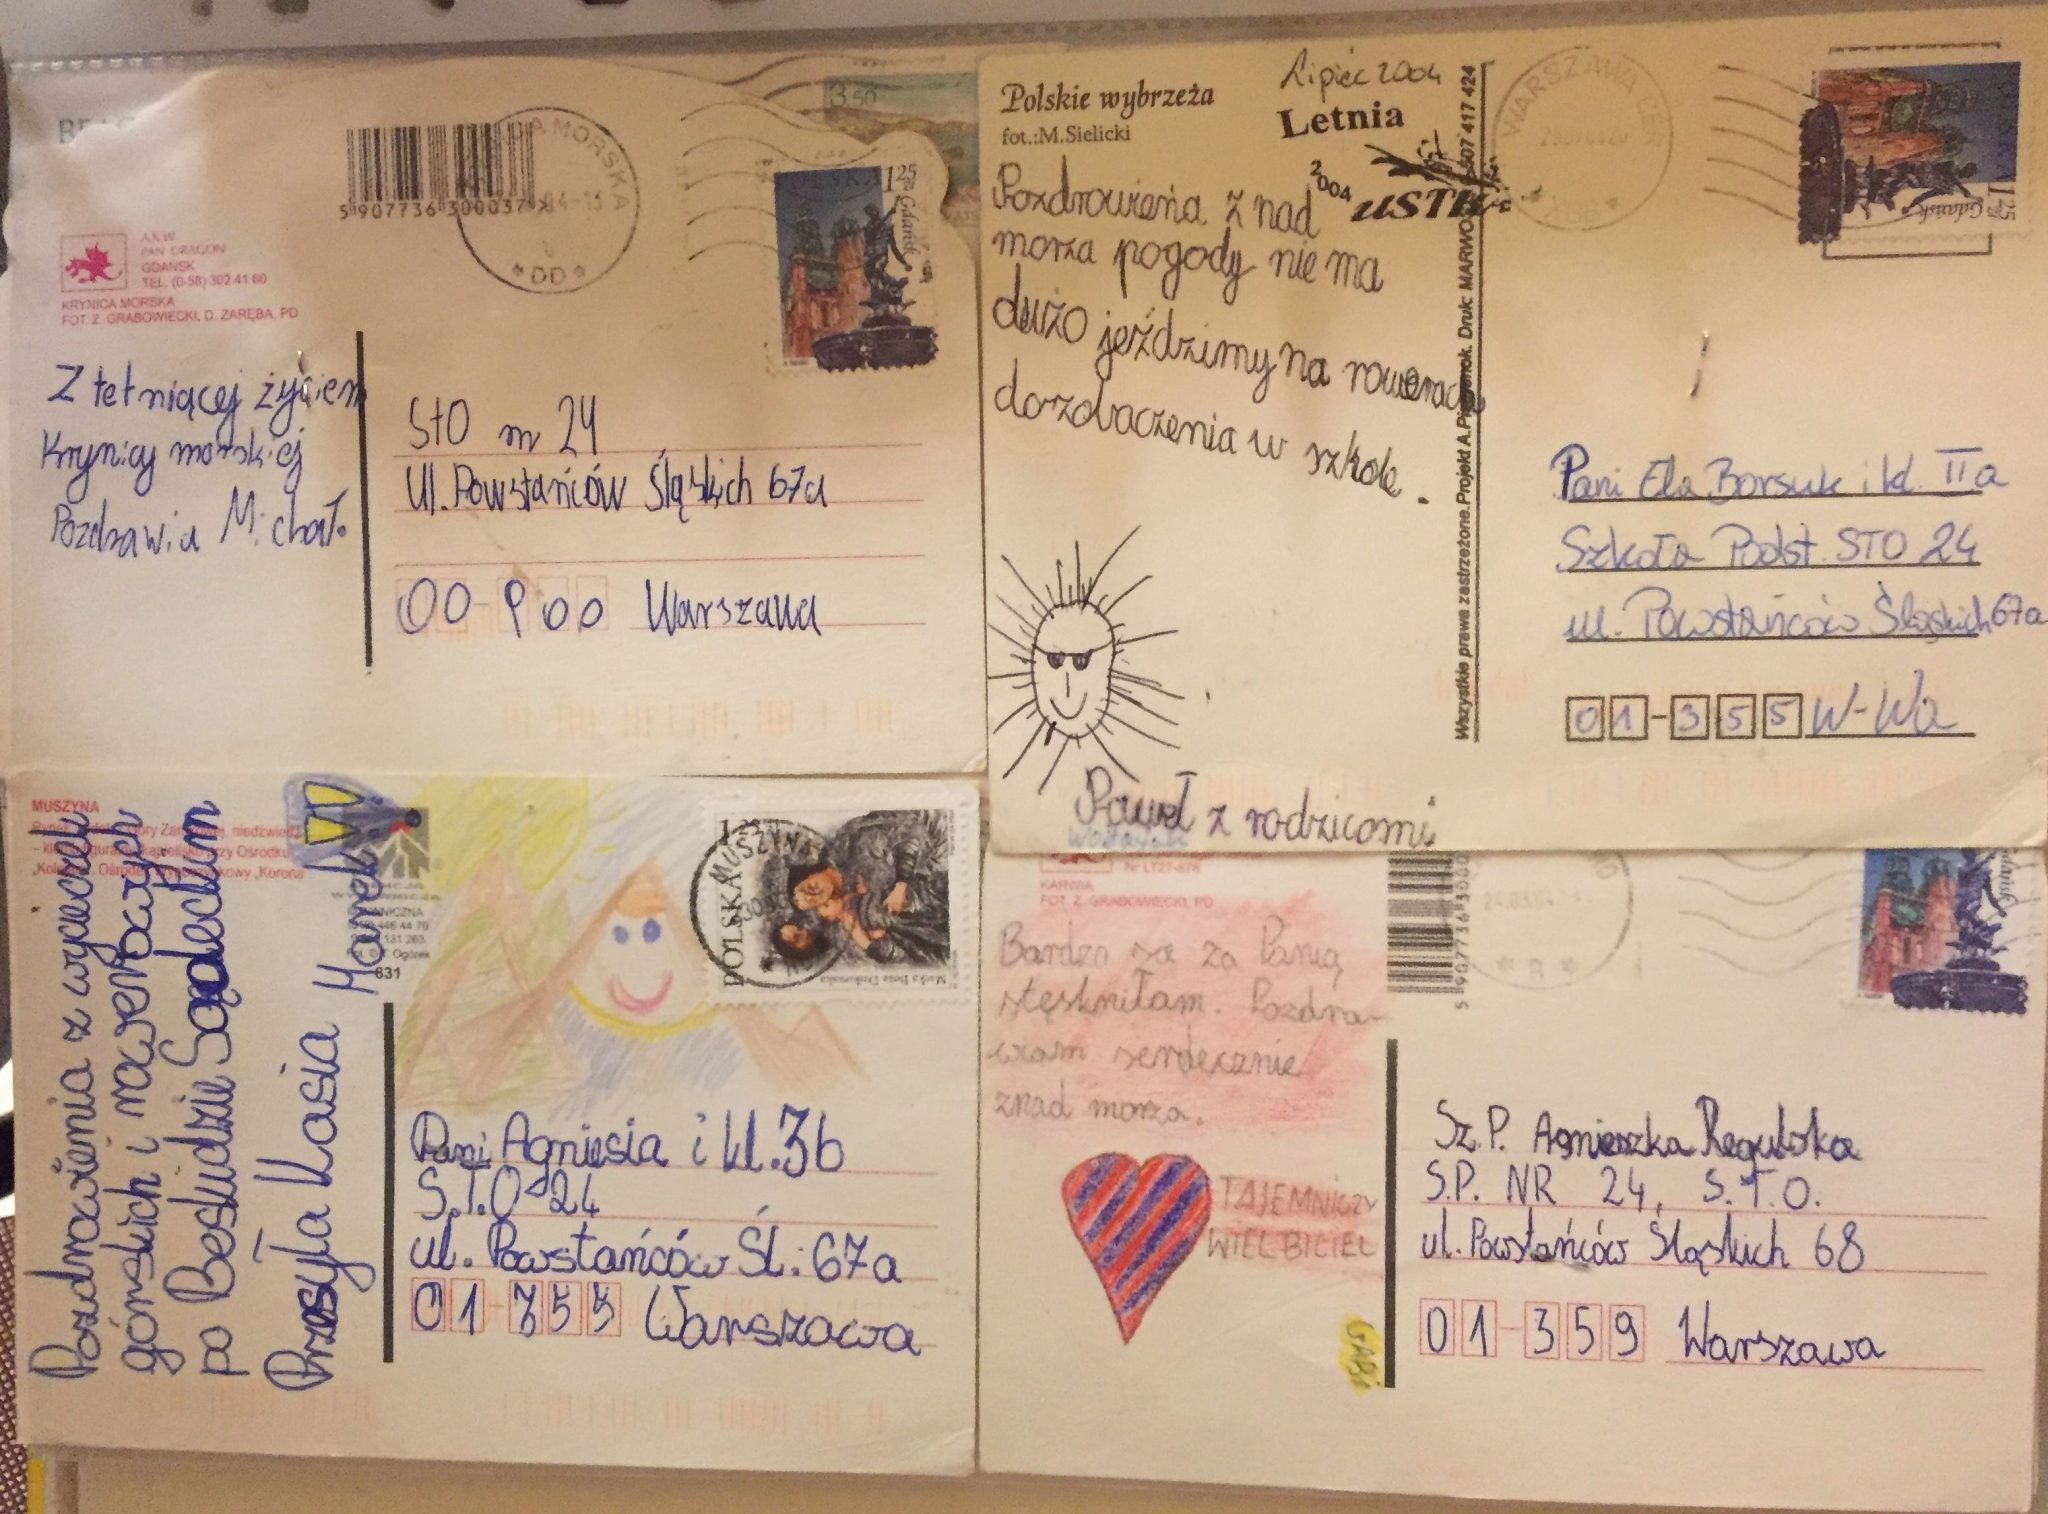 5 907736 300037
A MORSKA
DD
3,50
125
Gdańsk
A.K.W
PAN DRAGON
GDAŃSK
TEL. (0-58) 302 41 60
KRYNICA MORSKA
FOT. Z. GRABOWIECKI, D. ZARĘBA, PD
Z tętniącej życiem
Krynicy morskiej
Pozdrawia Michał.
STO nr 24
Ul. Powstańców Śląskich 67a
00-900 Warszawa
Polskie wybrzeża
fot.:M.Sielicki
Lipiec 2004
Letnia
2004
WARSZAWA
125
Gdańsk
Pozdrowienia z nad
morza pogody nie ma
dużo jeździmy na rowerach
dozobaczenia w szkole.
Paweł z rodzicami
Wszystkie prawa zastrzeżone. Projekt A. Druk: 607 417 424
Pani Ela Borsuk i kl. IIa
Szkoła Podst. STO 24
ul. Powstańców Śląskich 67a
01-355 W-Wa
MUSZYNA
Pozdrowienia z wycieczek
górskich i rowerowych
po Beskidzie Sądeckim
Przesyła Kasia Manek
631
POLSKA
MUSZYNA
Matka Boża
Pani Agniesia i kl. 3b
S.T.O 24
ul. Powstańców Śl. 67a
01-355 Warszawa
KARWIA
FOT. Z. GRABOWIECKI, PD
5 907736 3000
Gdańsk
Bardzo sę za Panią
stęskniłam. Pozdra-
wiam serdecznie
znad morza.
TAJEMNICZY
WIELBICIEL
GABI
Sz.P. Agnieszka Regulska
S.P. NR 24, S.T.O.
ul. Powstańców Śląskich 68
01-359 Warszawa